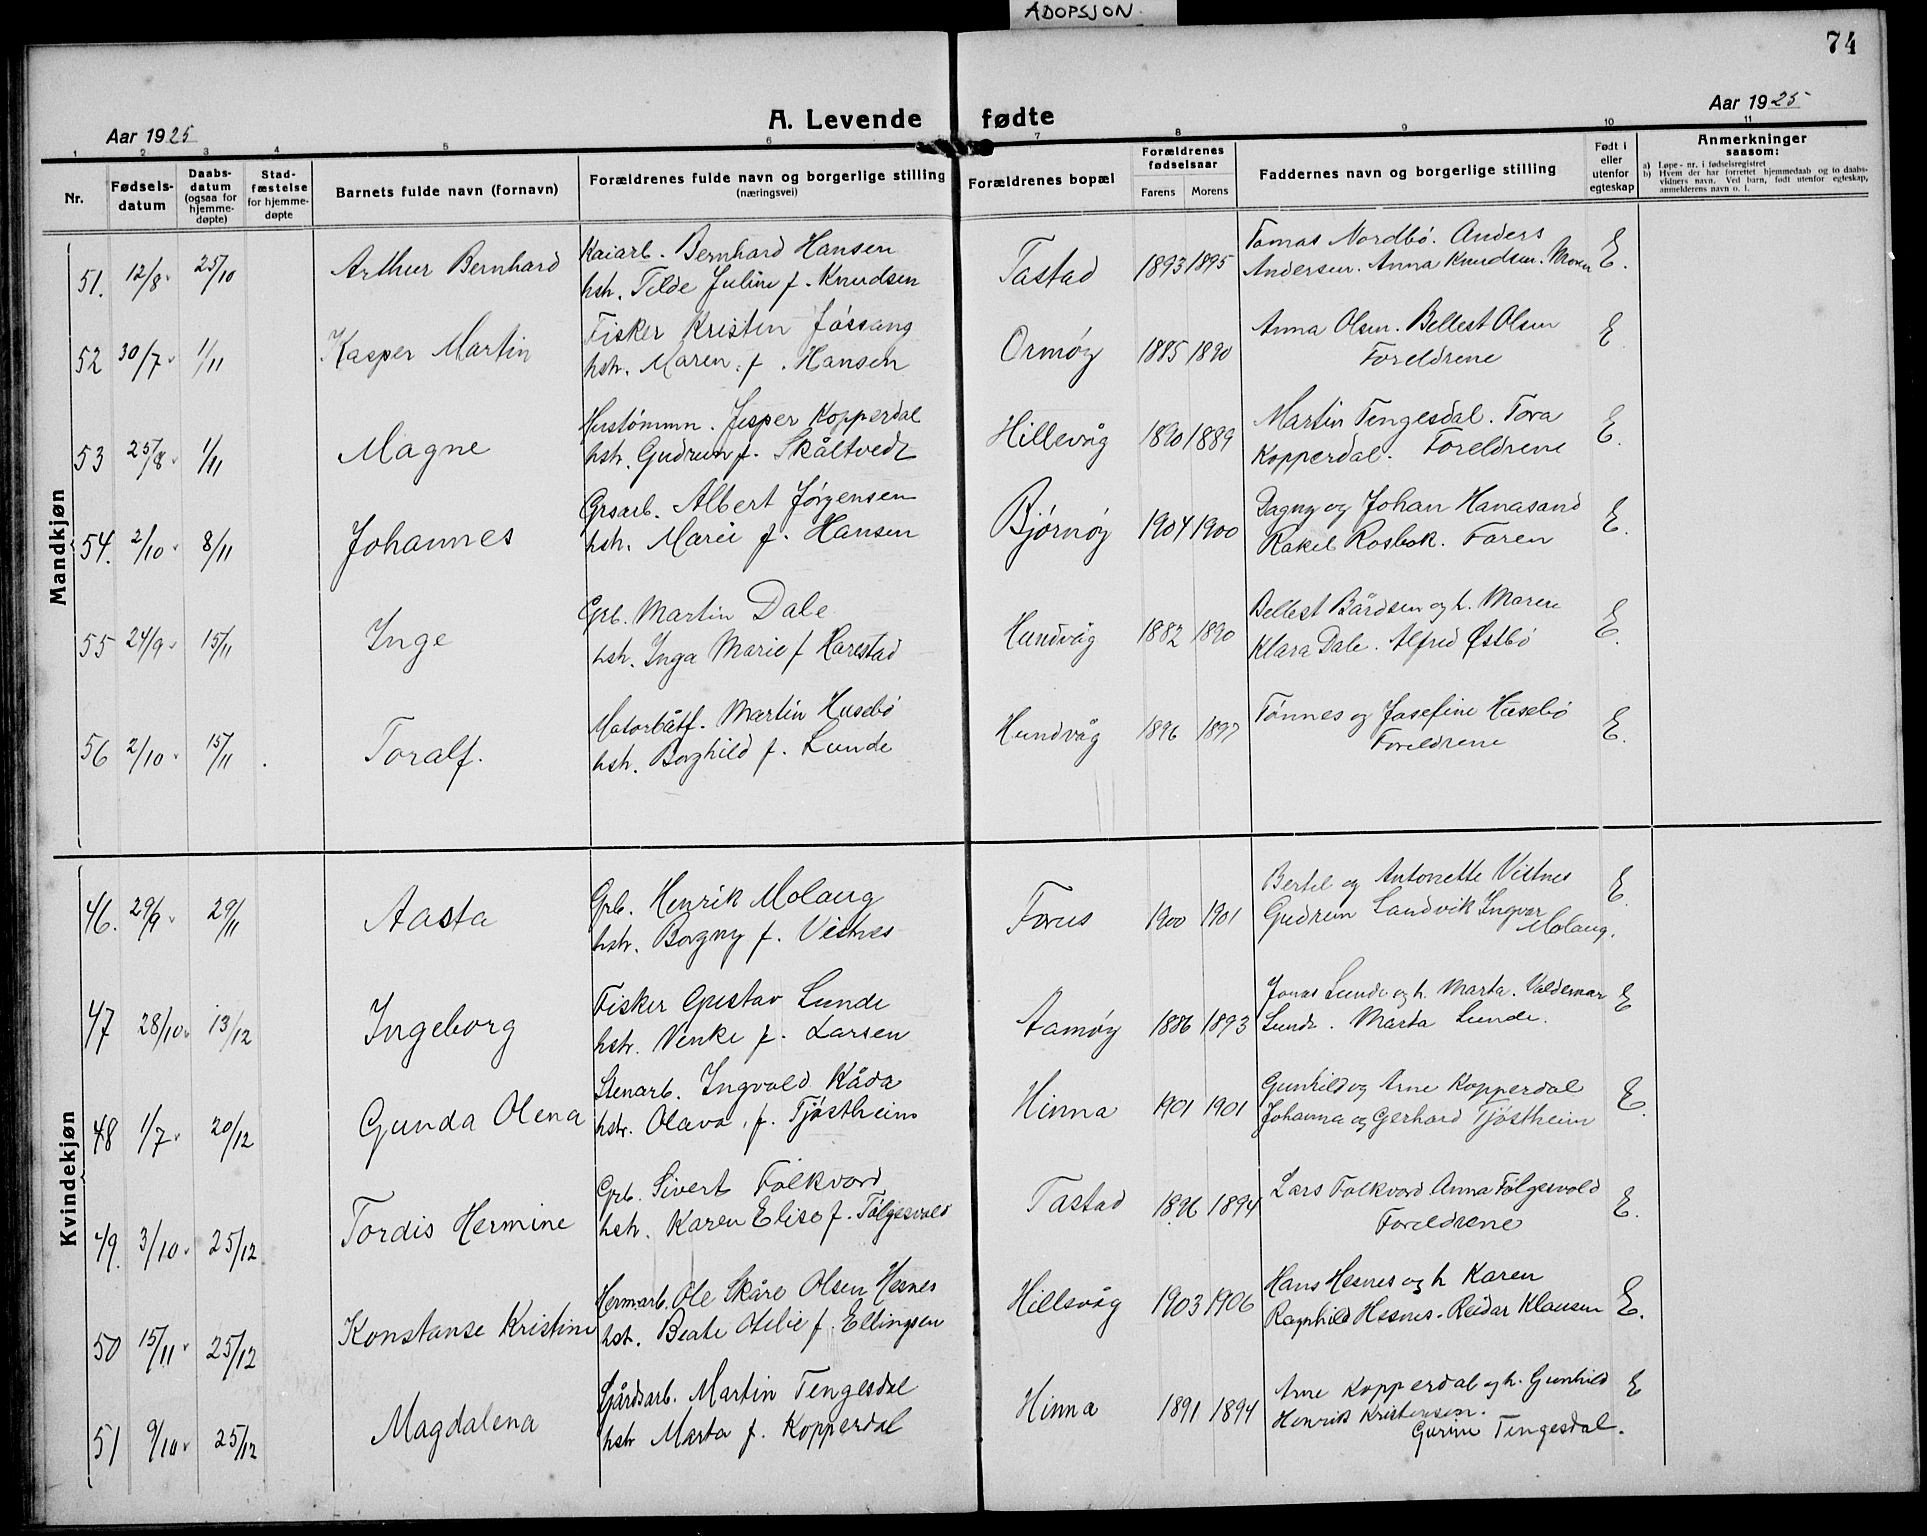 ADOPSJON.
74
Aar 1925
A. Levende fødte
Aar 1925
1 2 3 4 5 6 7 8 9 10 11
Nr.
Fødsels-
datum
Daabs-
datum
(ogsaa for
hjemme-
døpte)
Stad-
fæstelse
for hjemme-
døpte
Barnets fulde navn (fornavn)
Forældrenes fulde navn og borgerlige stilling
(næringsvei)
Forældrenes bopæl
Forældrenes
fødselsaar
Farens Morens
Faddernes navn og borgerlige stilling
Født i
eller
utenfor
egteskap
Anmerkninger
saasom:
a) Løpe-nr. i fødselsregistret
b) Hvem der har forrettet hjemmedaab og to daabs-
vidners navn. Ved barn, født utenfor egteskap,
anmelderens navn o. l.
Mandkjøn
51. 12/8 25/10 Arthur Bernhard
Kaiarb. Bernhard Hansen
hstr. Tilde Juline f. Knudsen
Tastad 1893 1895
Tomas Nordbø. Anders
Andersen. Anna Knudsen. Moren
E.
52 30/7 1/11 Kasper Martin
Fisker Kristen Jøssang
hstr. Maren f. Hansen
Ormøy 1885 1890
Anna Olsen. Bellest Olsen
Foreldrene
E
53 25/8 1/11 Magne
Jesper Kopperdal
hstr. Gudrun f. Skåltvedt
Hillevåg 1890 1889
Martin Tengesdal. Tora
Kopperdal. Foreldrene
E.
54. 2/10 8/11 Johannes
Grsarb. Albert Jørgensen
hstr. Marie f. Hansen
Bjørnøy 1904 1900
Dagny og Johan Hanasand
Rakel Rosbok. Faren
E.
55 24/9 15/11 Inge
Grb. Martin Dale
hstr. Inga Marie f Harestad
Hundvåg 1882 1890
Bellest Bårdsen og h. Maren
Klara Dale. Alfred Østbø
E.
56 2/10 15/11 Toralf.
Motorbåtf. Martin Husebø
hstr. Borghild f. Lunde
Hundvåg 1896 1897
Tønnes og Josefine Husebø
Foreldrene
E.
Kvindekjøn
46. 29/9 29/11 Aasta
Grb. Henrik Molaug
hstr. Borgny f. Vistnes
Forus 1900 1901
Bertel og Antonette Vistnes
Gudrun Sandvik Ingvar
Molaug.
E.
47 28/10 13/12 Ingeborg
Fisker Gustav Lunde
hstr. Venke f. Larsen
Aamøy 1886 1893
Jonas Lunde og h. Marta. Valdemar
Lunde. Marta Lunde.
E
48 1/7 20/12 Gunda Olena
Stenarb. Ingvald Kåda
hstr. Olava, f. Tjøstheim
Hinna 1901 1901
Gunhild og Arne Kopperdal
Johanna og Gerhard Tjøstheim
E.
49. 3/10 25/12 Tordis Hermine
Grb. Sivert Folkvord
hstr. Karen Elise f. Tølgesvold
Tastad 1896 1894
Lars Folkvord Anna Tølgesvold
Foreldrene
E.
50 15/11 25/12 Konstanse Kristine
Hermarb. Ole Skåre Olsen Hesnes
hst. Beate Otelie f. Ellingsen
Hillevåg 1903 1906
Hans Hesnes og h Karen
Ragnhild Hesnes. Reidar Klausen
E.
51 9/10 25/12 Magdalena
Gårdsarb. Martin Tengesdal
hstr Marta f. Kopperdal
Hinna 1891 1894
Arne Kopperdal og h. Gunhild
Henrik Kristensen.
Gurine Tengesdal.
E